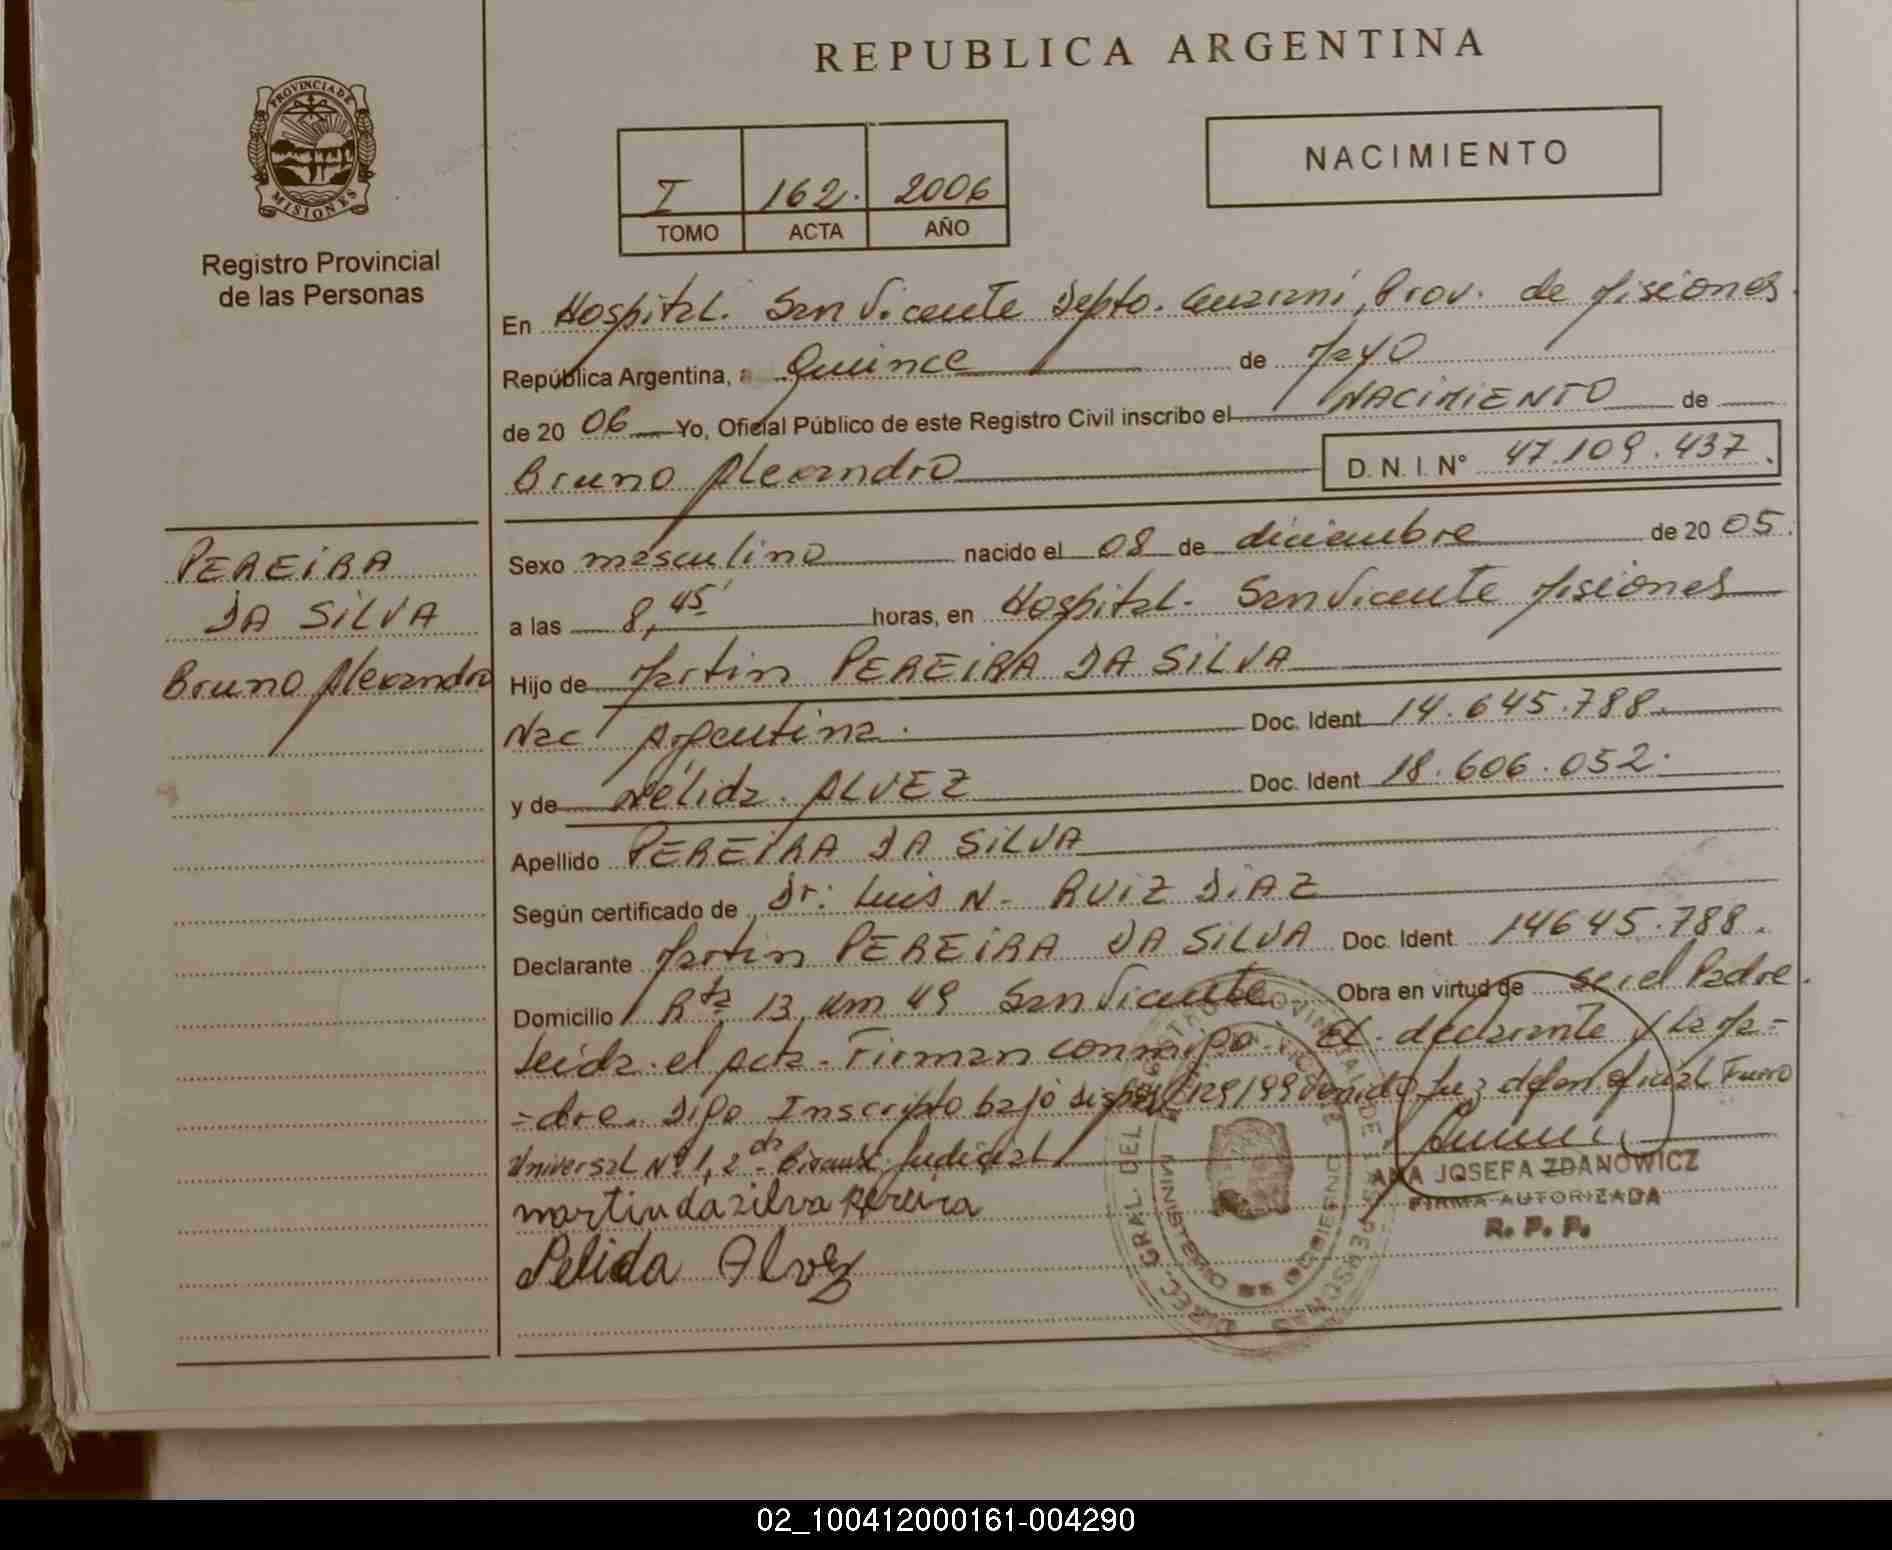 REPUBLICA ARGENTINA
PROVINCIA DE
MISIONES
Registro Provincial
de las Personas
I 162. 2006
TOMO ACTA AÑO
NACIMIENTO
En Hospital. San Vicente Depto. Guaraní, Prov. de Misiones.
República Argentina, a Quince de Mayo
de 20 06 Yo, Oficial Público de este Registro Civil inscribo el NACIMIENTO de
Bruno Alexandro D. N. I. N° 47.109.437.
PEREIRA
DA SILVA
Bruno Alexandro
Sexo masculino nacido el 08 de diciembre de 20 05.
a las 8,45' horas, en Hospital. San Vicente Misiones
Hijo de Martin PEREIRA DA SILVA
Nac Argentina. Doc. Ident 14.645.788.
y de Nélida. ALVEZ Doc. Ident 18.606.052.
Apellido PEREIRA DA SILVA
Según certificado de Dr: Luis N. RUIZ DIAZ
Declarante Martin PEREIRA DA SILVA Doc. Ident. 14645.788.
Domicilio Rta 13, Km 49 San Vicente Obra en virtud de ser el Padre.
Leida el acta. Firman conmigo. El declarante y la Ma=
=dre. Digo Inscripto bajo 129/99 defen. oficial Fuero
Universal Nº 1, 2da Judicial
martin da zilva Pereira
Nelida Alvez
ANA JOSEFA ZDANOWICZ
FIRMA AUTORIZADA
R. P. P.
DIREC. GRAL. DEL REGISTRO PROVINCIAL DE LAS PERSONAS
MINISTERIO DE GOBIERNO
02_100412000161-004290